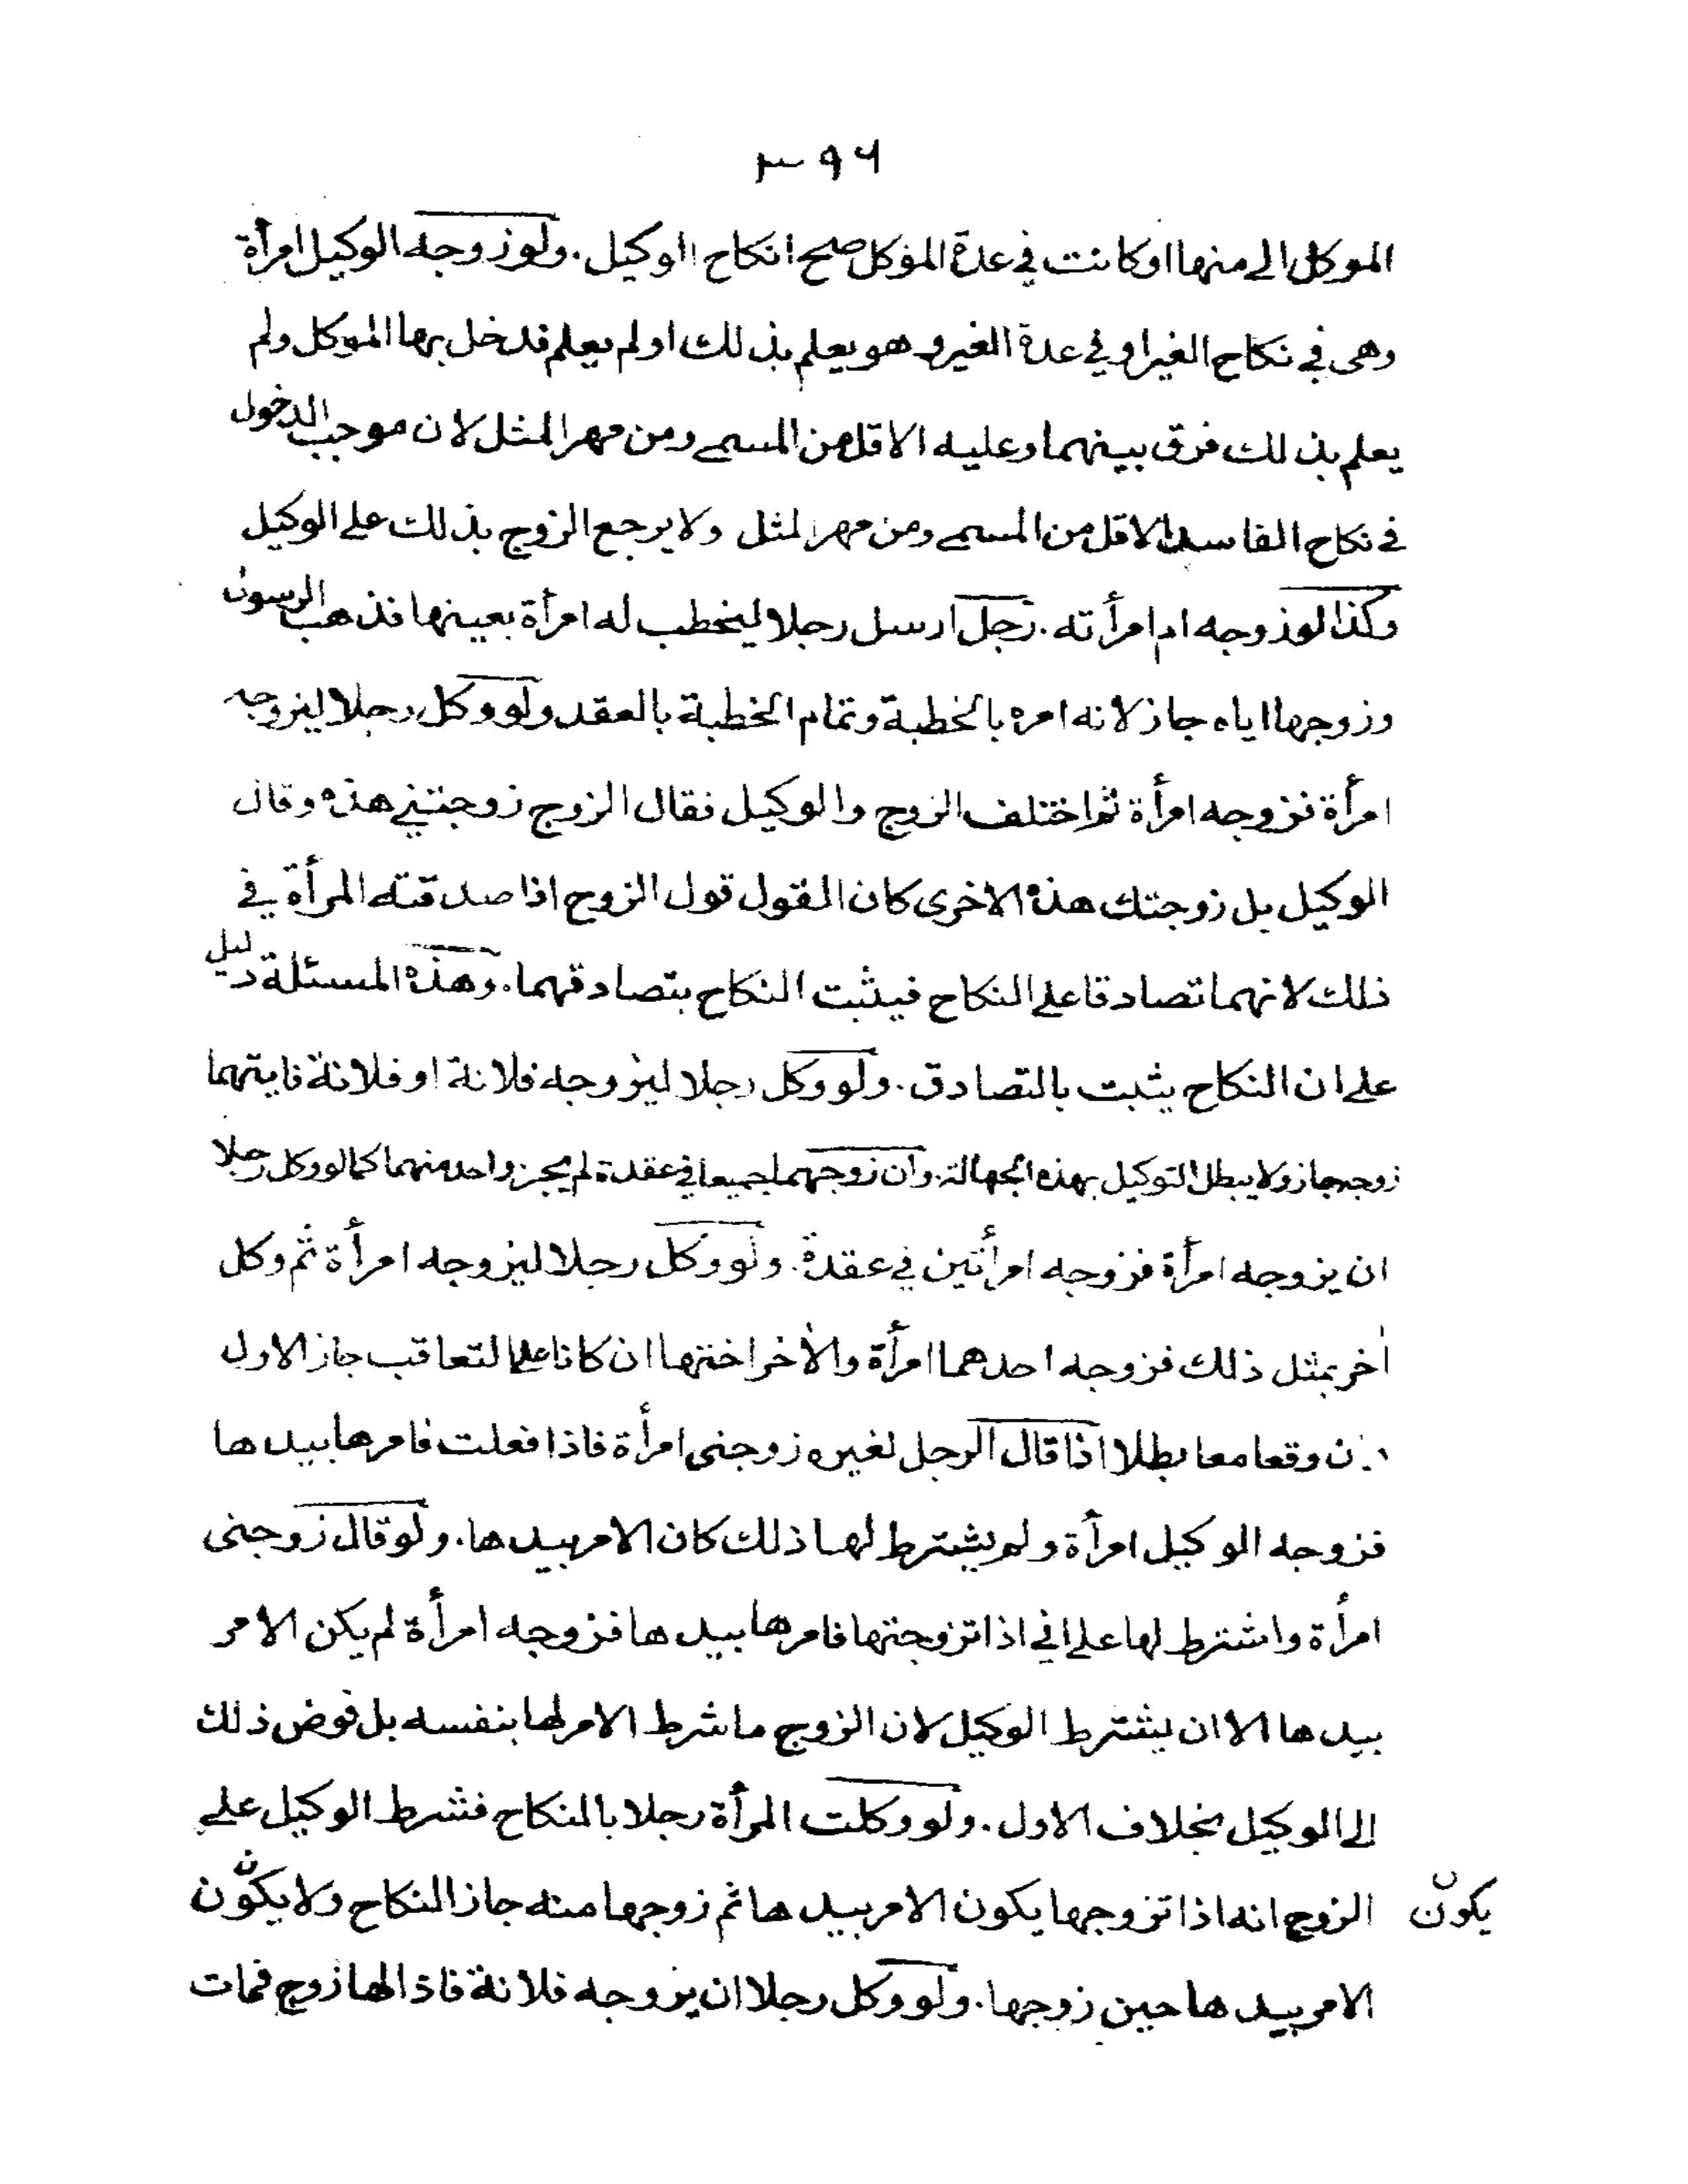 ۳۹۶
الموكل الى منها او كانت في عدة الموكل صح انكاح الوكيل. ولو زوجه الوكيل امرأة
وهى في نكاح الغير او في عدة الغير وهو يعلم بذلك او لم يعلم فدخل بها الموكل ولم
يعلم بذلك فرق بينهما وعليه الاقل من المسمى ومن مهر المثل لان موجب الدخول
في نكاح الفاسد الاقل من المسمى ومن مهر المثل ولا يرجع الزوج بذلك على الوكيل
وكذا لو زوجه ام امرأته. رجل ارسل رجلا ليخطب له امرأة بعينها فذهب الرسول
وزوجها اياه جاز لانه امره بالخطبة وتمام الخطبة بالعقد ولو وكل رجلا ليزوجه
امرأة فزوجه امرأة ثم اختلف الزوج والوكيل فقال الزوج زوجتني هذه وقال
الوكيل بل زوجتك هذه الاخرى كان القول قول الزوج اذا صدقته المرأة في
ذلك لانهما تصادقا على النكاح فيثبت النكاح بتصادقهما. وهذه المسئلة دليل
على ان النكاح يثبت بالتصادق. ولو وكل رجلا ليزوجه فلانة او فلانة فايتهما
زوجه جاز ولا يبطل التوكيل بهذه الجهالة. وان زوجهما جميعا في عقدة لم يجز واحد منهما كما لو وكل رجلا
ان يزوجه امرأة فزوجه امرأتين في عقدة. ولو وكل رجلا ليزوجه امرأة ثم وكل
اٰخر بمثل ذلك فزوجه احدهما امرأة والاٰخر اختها ان كانا على التعاقب جاز الاول
وان وقعا معا بطلا اذا قال الرجل لغيره زوجنى امرأة فاذا فعلت فامرها بيدها
فزوجه الوكيل امرأة ولم يشترط لها ذلك كان الامر بيدها. ولو قال زوجنى
امرأة واشترط لها على اني اذا تزوجتها فامرها بيدها فزوجه امرأة لم يكن الامر
بيدها الا ان يشترط الوكيل لان الزوج ما شرط الامر لها بنفسه بل فوض ذلك
الى الوكيل بخلاف الاول. ولو وكلت المرأة رجلا بالنكاح فشرط الوكيل على
الزوج انه اذا تزوجها يكون الامر بيدها ثم زوجها منه جاز النكاح ولا يكوّن
يكونّ
الامر بيدها حين زوجها. ولو وكل رجلا ان يزوجه فلانة فاذا لها زوج فمات